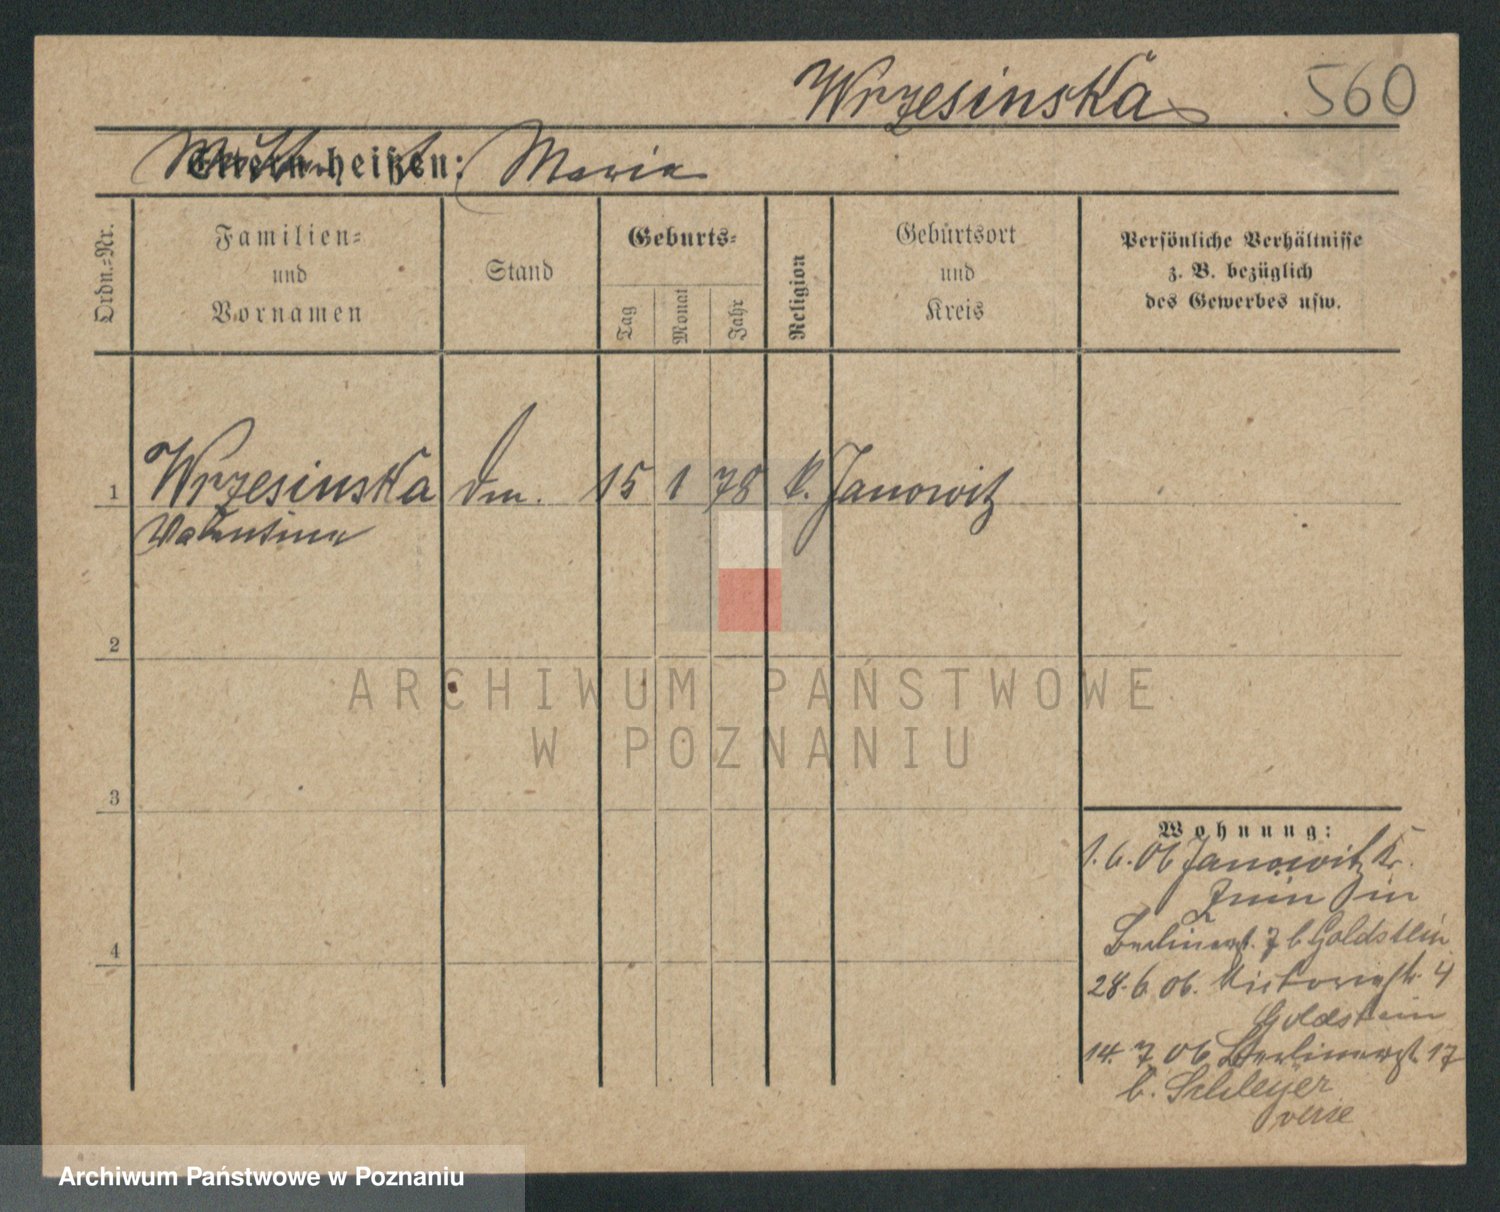 Wrzesinska
560
Eltern heißen: Maria
Ordn.-Nr.
Familien-
und
Vornamen
Stand
Geburts-
Tag
Monat
Jahr
Religion
Geburtsort
und
Kreis
Persönliche Verhältnisse
z. B. bezüglich
des Gewerbes usw.
1
Wrzesinska
Valentina
15
1
78
k.
Janowitz
2
3
4
Wohnung:
1.6.06 Janowitz Kr.
Znin in
Berlinerst. 7 b Goldstein
28.6 06. Victoriastr. 4
Goldstein
14. 7 06 Berlinerst. 17
b. Schleyer
ARCHIWUM PAŃSTWOWE
W POZNANIU
Archiwum Państwowe w Poznaniu